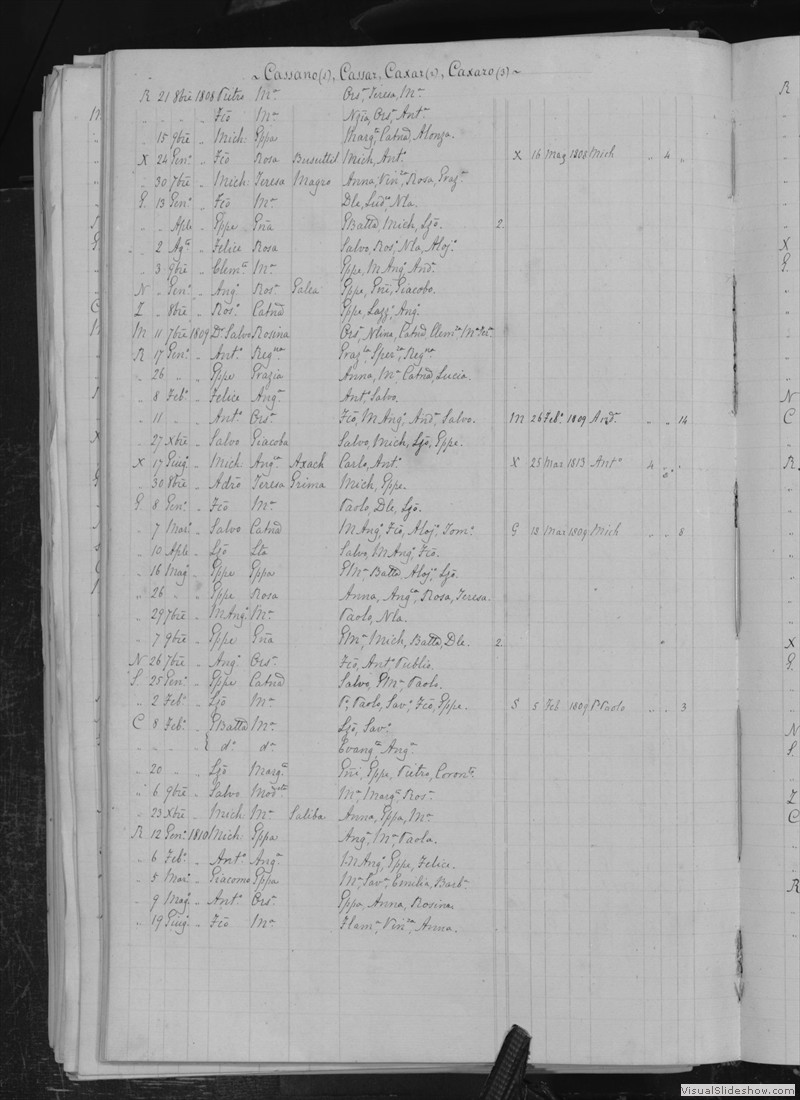 ~ Cassano(1), Cassar, Caxar(2), Caxaro(3) ~
R 21 8bre 1808 Pietro Ma Ors, Teresa, Ma
" " " " Fco Ma Ors, Ant
" 15 9bre " Mich: Eppa Marga, Catnd, Alonza.
X 24 Genº " Fco Rosa Busuttil Mich, Antº X 16 Mag 1808 Mich " 4 "
" 30 7bre " Mich: Teresa Magro Anna, Vinza, Rosa, Graza
G. 13 Genº " Fco Ma Dle, Ludº, Nla.
" " Aple " Gppe Gna GBatta, Mich, Ljo. 2.
" 2 Agº " Felice Rosa Salvo, Rosº, Nla, Alojº
" 3 9bre " Clemte Ma Gppe, MAngº, Andº
N " Genº " Angº Rosa Galea Gppe, Gni, Giacobo.
Z " 8bre " Rosº Catnd Gppe, Lazzº, Angº
M 11 7bre 1809 Dr Salvo Rosina
R 17 Genº " Antº Regna Graza, Sperza, Regna
" 26 " " Gppe Grazia Anna, Ma Catnd, Lucia.
" 8 Febº " Felice Anga Antº, Salvo.
" 11 " " Antº Orsa Fco, MAngº, Andº, Salvo. M 26 Febº 1809 Andº " " 14
" 27 Xbre " Salvo Giacoba Salvo, Mich, Ljo, Gppe.
X 17 Giugº " Mich: Anga Axach Carlo, Antº X 25 Mar 1813 Antº 4
" 30 8bre " Adrº Teresa Grima Mich, Gppe.
G 8 Genº " Fco Ma Paolo, Dle, Ljo.
" 7 Marº " Salvo Catnd MAngº, Fco, Alojº, Tomº G 18 Mar 1809 Mich " " 8
" 10 Aple " Ljo Salvo, MAngº, Fco.
" 16 Magº " Gppe Eppa Batta, Alojº, Ljo.
" 26 " " Gppe Rosa Anna, Anga, Rosa, Teresa.
" 29 7bre " MAngº Ma Paolo, Nla.
" 7 9bre " Gppe Gna Mich, Batta, Dle. 2.
N 26 7bre " Angº Orsa Fco, Antº, Publio.
S. 25 Genº " Gppe Catnd Salvo, Paolo.
" 2 Febº " Ljo Ma P. Paolo, Savº, Fco, Gppe. S 5 Feb 1809 P Paolo " " 3
C 8 Febº " GBatta Ma Ljo, Savº
" " " " { dº dº Evanga, Anga
" 20 " " Ljo Marga Gni, Gppe, Pietro, Coront
" 6 9bre " Salvo Modta Ma, Marga, Rosa
" 23 Xbre " Mich: Ma Saliba Anna, Eppa, Ma
R 12 Genº 1810 Mich: Eppa Anga, Ma, Paola.
" 6 Febº " Antº Anga MAngº, Gppe, Felice.
" 5 Marº " Giacomo Eppa Ma, Sava, Emilia, Barba
" 9 Magº " Antº Orsa Eppa, Anna, Rosina
" 19 Giugº " Fco Ma Flama, Vinza, Anna.
VisualSlideshow.com